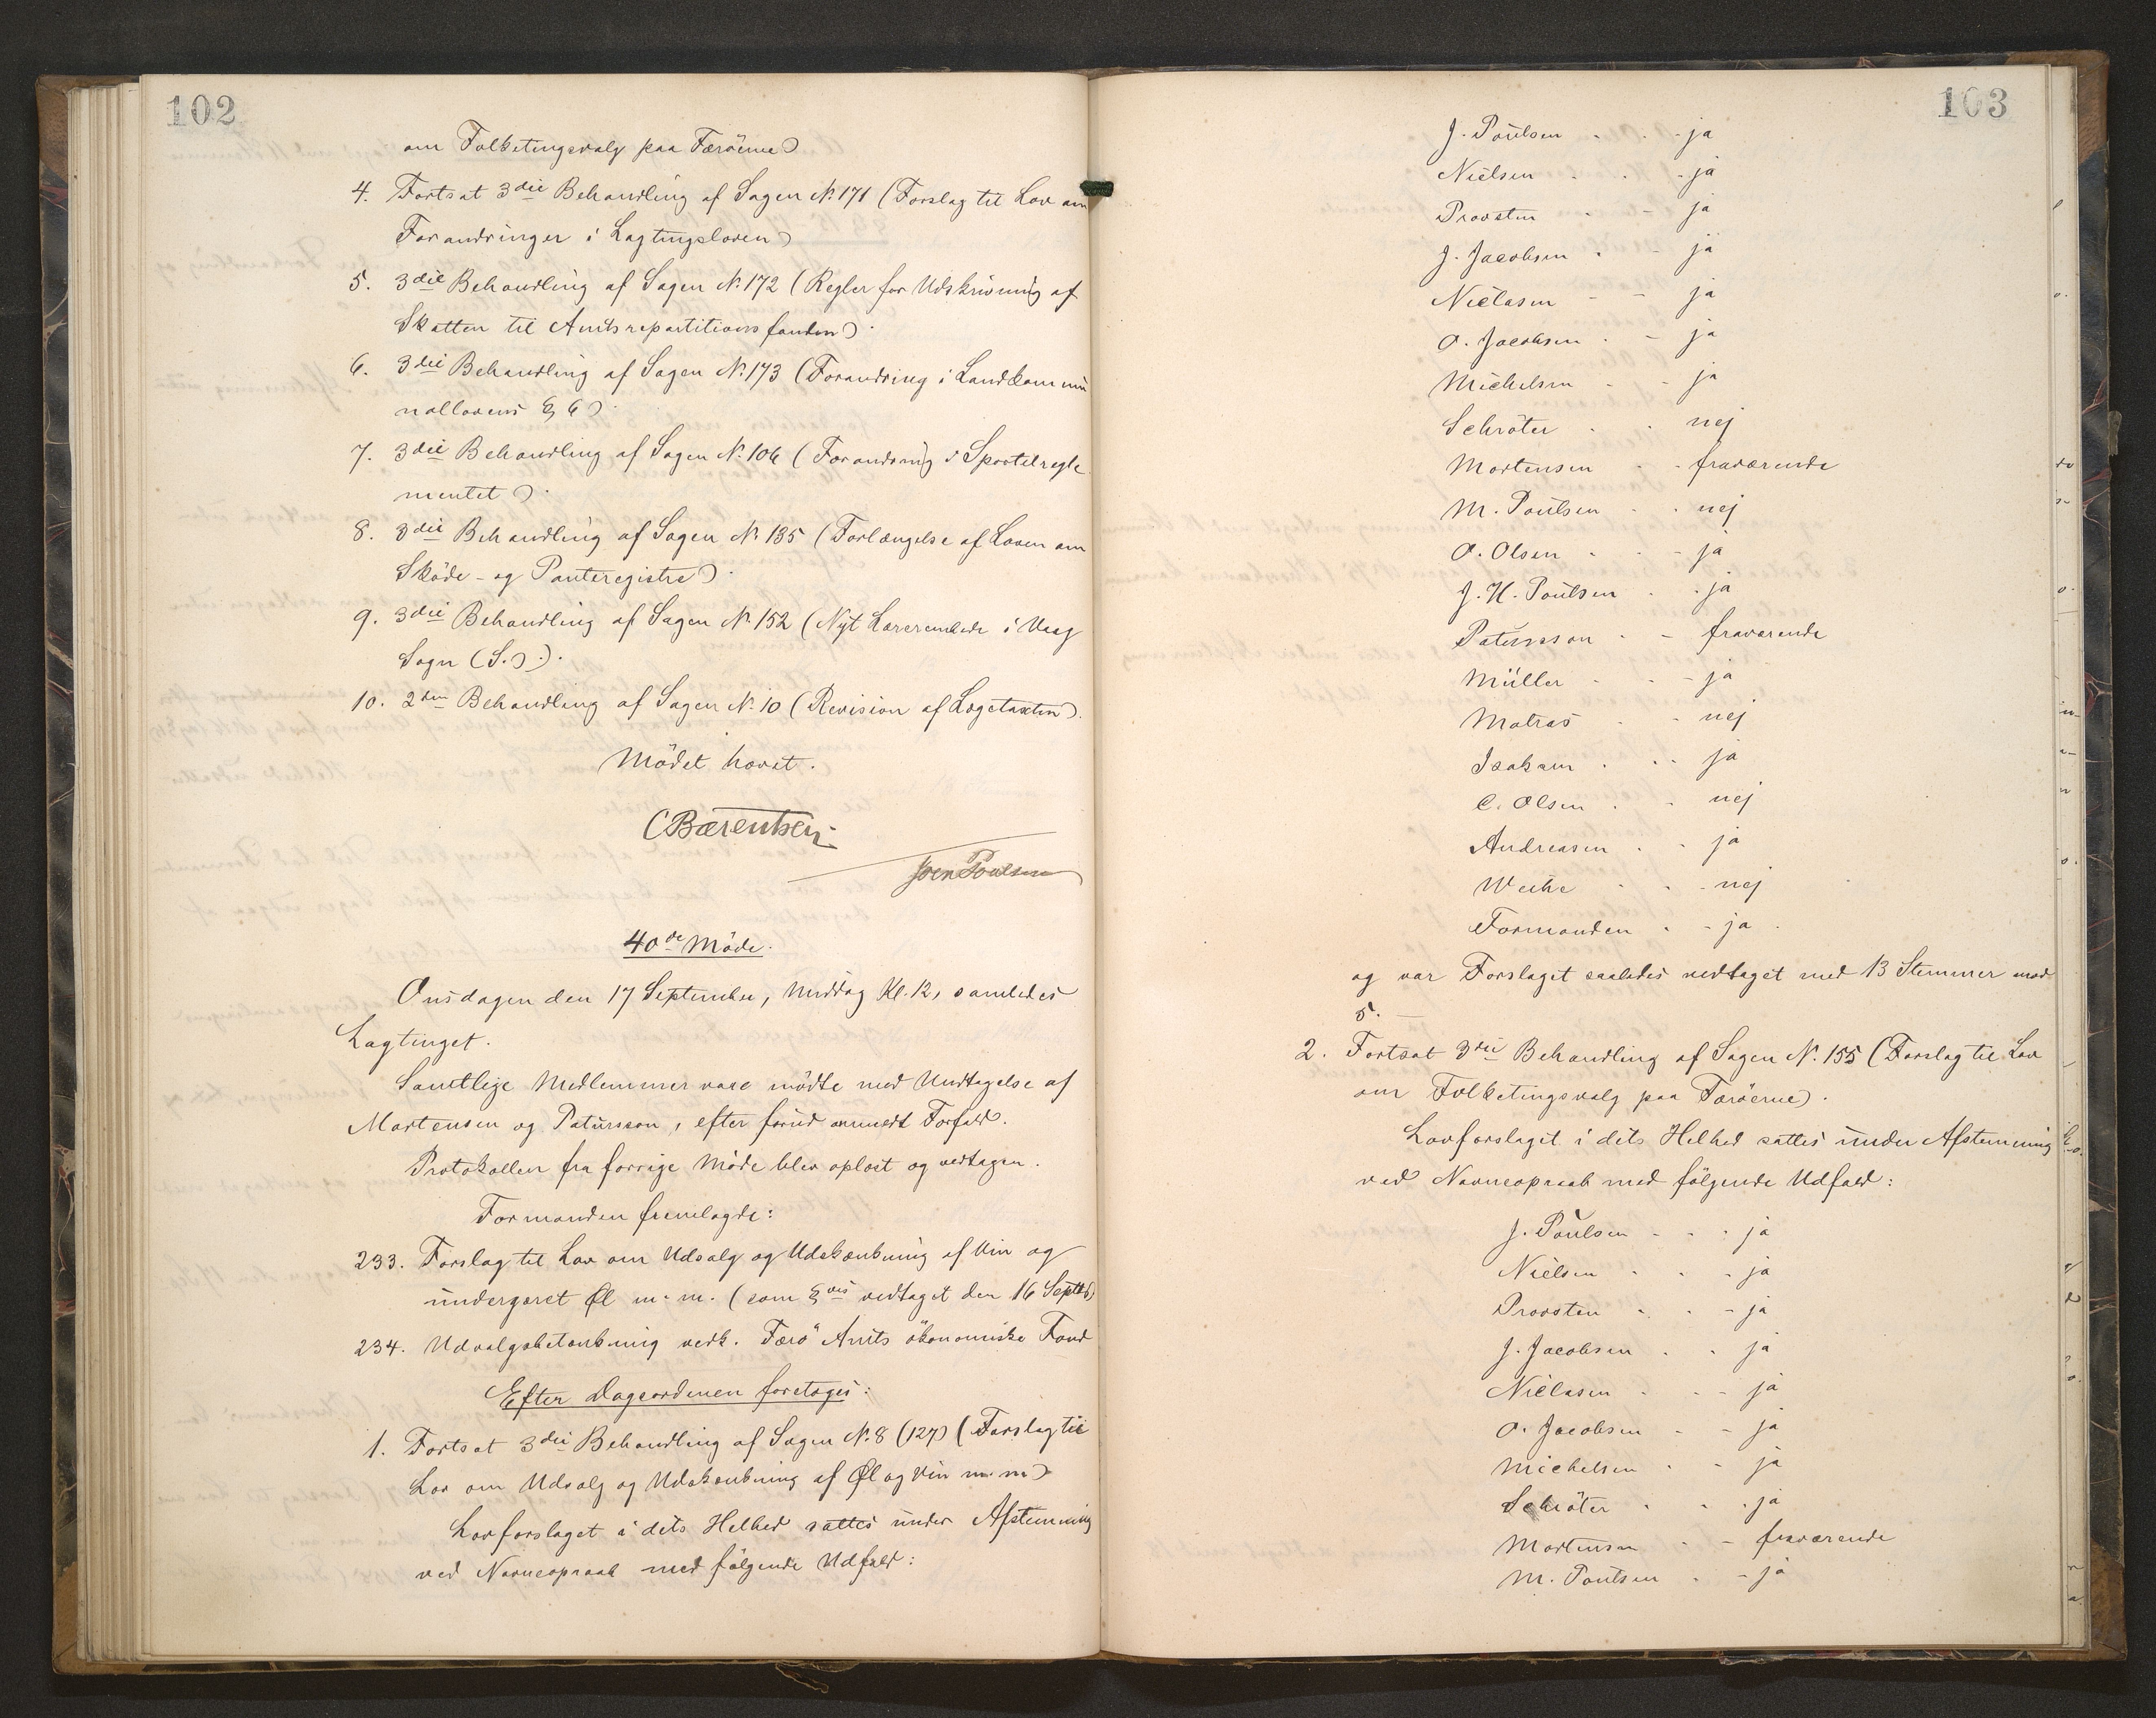 102
om Folketingsvalg paa Færöerne)
4. Fortsat 3die Behandling af Sagen No. 171 (Forslag til Lov om
Forandringer i Lagtingsloven)
5. 3die Behandling af Sagen No. 172 (Regler for Udskrivning af
Skatten til Amtsrepartitionsfonden).
6. 3die Behandling af Sagen No. 173 (Forandring i Landkommu
nallovens § 6).
7. 3die Behandling af Sagen No. 106 (Forandring i Sportelregle
mentet).
8. 3die Behandling af Sagen No. 135 (Forlængelse af Loven om
Sköde- og Panteregistre).
9. 3die Behandling af Sagen No. 152 (Nyt Lærerembede i Vaag
Sogn (S.)).
10. 2den Behandling af Sagen No. 10 (Revision af Lægetaxten).
Mödet hævet.
CBærentsen
Joen Poulsen
40de Möde.
Onsdagen den 17 September, Middag Kl. 12, samledes
Lagtinget.
Samtlige Medlemmer vare mödte med Undtagelse af
Mortensen og Patursson, efter forud anmeldt Forfald.
Protokollen fra forrige Möde blev oplæst og vedtagen.
Formanden fremlagde:
233. Forslag til Lov om Udsalg og Udskænkning af Vin og
undergæret Øl m. m. (som §vis vedtaget den 16 Septbr)
234. Udvalgsbetænkning vedk. Færö Amts ökonomiske Fond
Efter Dagsordenen foretoges:
1. Fortsat 3die Behandling af Sagen No. 8 (127) (Forslag til
Lov om Udsalg og Udskænkning af Øl og Vin m. m)
Lovforslaget i dets Helhed sattes under Afstemning
ved Navneopraab med fölgende Udfald:
103
J. Poulsen - - - ja
Nielsen - - - ja
Provsten - - ja
J. Jacobsen - - ja
Niclasen - - ja
O. Jacobsen - - ja
Michelsen - - ja
Schröter - - nej
Mortensen - - fraværende
M. Poulsen - - nej
O. Olsen - - - ja
J. H. Poulsen - - ja
Patursson - - fraværende
Müller - - - ja
Matras - - nej
Isaksen - - - ja
C. Olsen - - nej
Andreasen - - ja
Weihe - - - nej
Formanden - - ja.
og var Forslaget saaledes vedtaget med 13 Stemmer mod
5. —
2. Fortsat 3die Behandling af Sagen No. 155 (Forslag til Lov
om Folketingsvalg paa Færöerne).
Lovforslaget i dets Helhed sattes under Afstemning
ved Navneopraab med fölgende Udfald:
J. Poulsen - - - ja
Nielsen - - - ja
Provsten - - - ja
J. Jacobsen - - ja
Niclasen - - - ja
O. Jacobsen - - ja
Michelsen - - ja
Schröter - - - ja
Mortensen - - fraværende
M. Poulsen - - ja